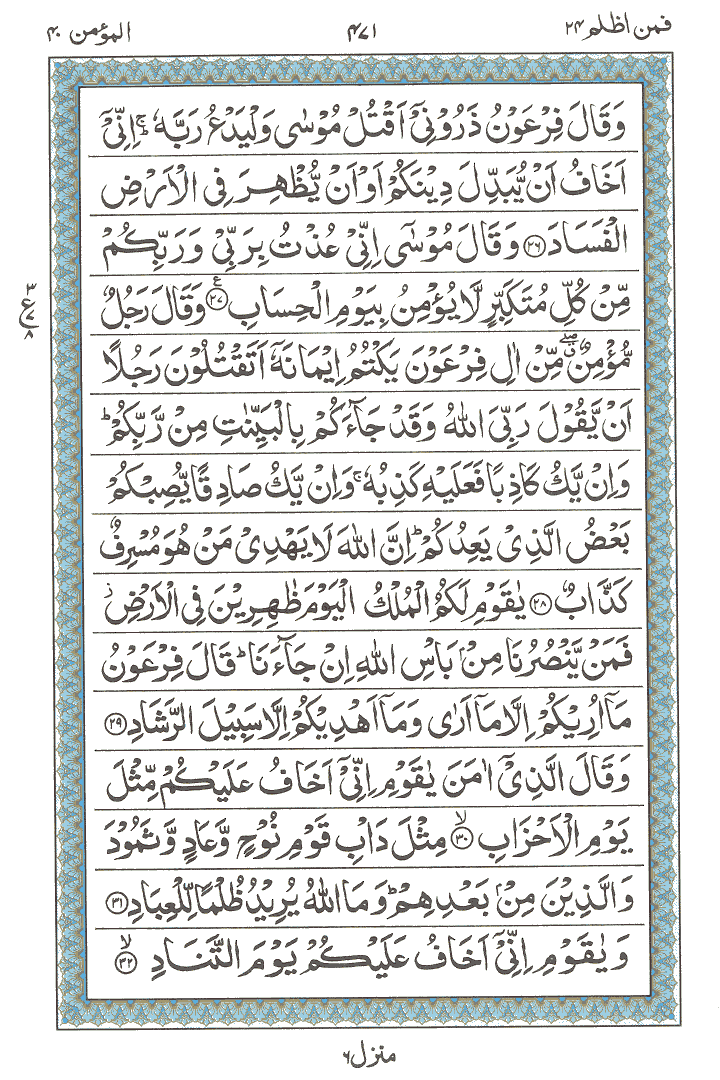 فمن اظلم ٢٤ ٤٧١ المؤمن ٤٠
وَقَالَ فِرْعَوْنُ ذَرُوْنِيْٓ اَقْتُلْ مُوْسٰى وَلْيَدْعُ رَبَّهٗ ۚ اِنِّيْٓ
اَخَافُ اَنْ يُّبَدِّلَ دِيْنَكُمْ اَوْ اَنْ يُّظْهِرَ فِى الْاَرْضِ
الْفَسَادَ ﴿٢٦﴾ وَقَالَ مُوْسٰٓى اِنِّيْ عُذْتُ بِرَبِّيْ وَرَبِّكُمْ
مِّنْ كُلِّ مُتَكَبِّرٍ لَّا يُؤْمِنُ بِيَوْمِ الْحِسَابِ ﴿٢٧﴾ ع وَقَالَ رَجُلٌ
مُّؤْمِنٌ ۖ ق مِّنْ اٰلِ فِرْعَوْنَ يَكْتُمُ اِيْمَانَهٗٓ اَتَقْتُلُوْنَ رَجُلًا
اَنْ يَّقُوْلَ رَبِّيَ اللهُ وَقَدْ جَآءَكُمْ بِالْبَيِّنٰتِ مِنْ رَّبِّكُمْ ؕ
وَاِنْ يَّكُ كَاذِبًا فَعَلَيْهِ كَذِبُهٗ ۚ وَاِنْ يَّكُ صَادِقًا يُّصِبْكُمْ
بَعْضُ الَّذِيْ يَعِدُكُمْ ؕ اِنَّ اللهَ لَا يَهْدِيْ مَنْ هُوَ مُسْرِفٌ
كَذَّابٌ ﴿٢٨﴾ يٰقَوْمِ لَكُمُ الْمُلْكُ الْيَوْمَ ظٰهِرِيْنَ فِى الْاَرْضِ ز
فَمَنْ يَّنْصُرُنَا مِنْۢ بَاْسِ اللهِ اِنْ جَآءَنَا ؕ قَالَ فِرْعَوْنُ
مَآ اُرِيْكُمْ اِلَّا مَآ اَرٰى وَمَآ اَهْدِيْكُمْ اِلَّا سَبِيْلَ الرَّشَادِ ﴿٢٩﴾
وَقَالَ الَّذِيْٓ اٰمَنَ يٰقَوْمِ اِنِّيْٓ اَخَافُ عَلَيْكُمْ مِّثْلَ
يَوْمِ الْاَحْزَابِ ﴿٣٠﴾ لا مِثْلَ دَاْبِ قَوْمِ نُوْحٍ وَّعَادٍ وَّثَمُوْدَ
وَالَّذِيْنَ مِنْۢ بَعْدِهِمْ ؕ وَمَا اللهُ يُرِيْدُ ظُلْمًا لِّلْعِبَادِ ﴿٣١﴾
وَيٰقَوْمِ اِنِّيْٓ اَخَافُ عَلَيْكُمْ يَوْمَ التَّنَادِ ﴿٣٢﴾ لا
٣
ع ٧
٨
منزل ٦